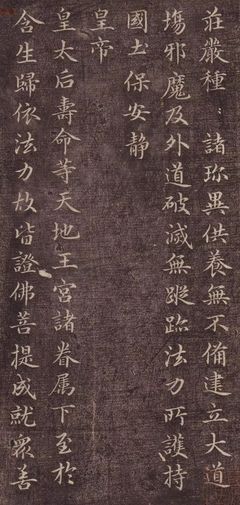 莊嚴種〻諸珎異供養無不備建立大道
塲邪魔及外道破滅無蹤跡法力所護持
國土保安靜
皇帝
皇太后壽命等天地王宮諸眷属下至於
含生歸依法力故皆證佛菩提成就眾善